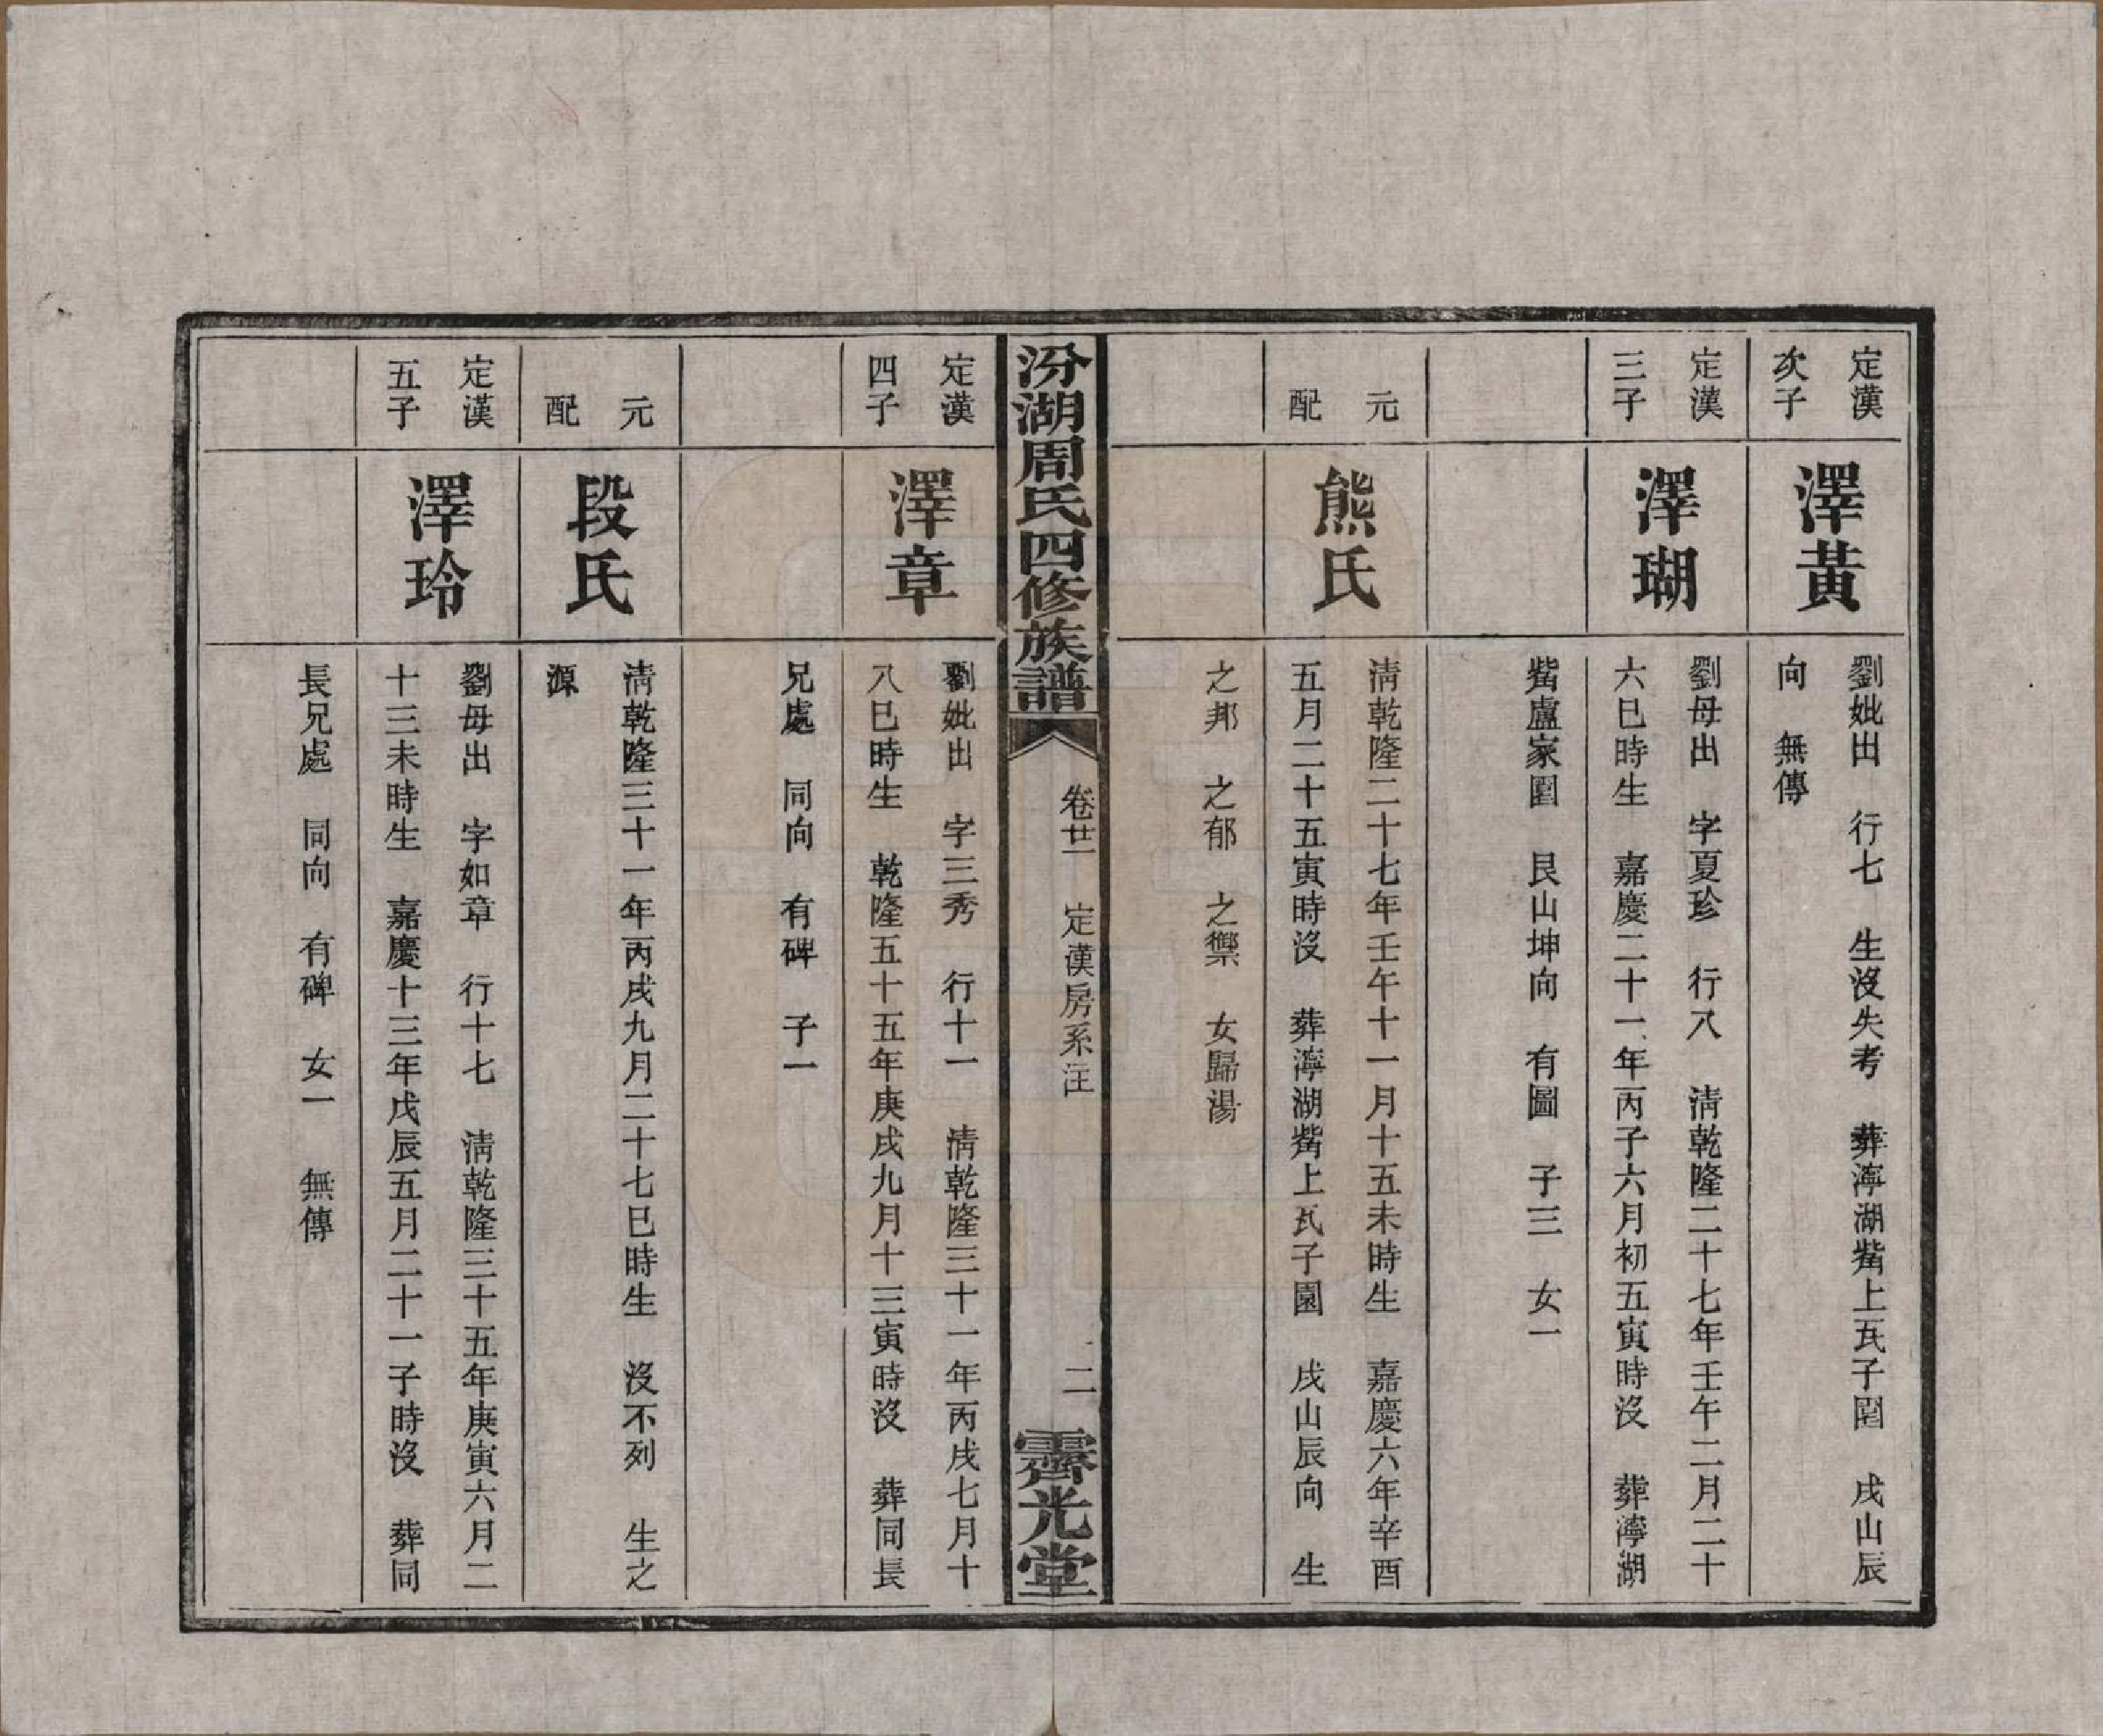 定漢
次子
澤黃
劉妣出　行七　生沒失考　葬濘湖觜上瓦子園　戌山辰
向　無傳
定漢
三子
澤瑚
劉母出　字夏珍　行八　淸乾隆二十七年壬午二月二十
六巳時生　嘉慶二十一年丙子六月初五寅時沒　葬濘湖
觜盧家園　艮山坤向　有圖　子三　女一
元
配
熊氏
淸乾隆二十七年壬午十一月十五未時生　嘉慶六年辛酉
五月二十五寅時沒　葬濘湖觜上瓦子園　戌山辰向　生
之邦　之郁　之禦　女歸湯
汾湖周氏四修族譜
卷廿一　定漢房系注
二
霽光堂
定漢
四子
澤章
劉妣出　字三秀　行十一　淸乾隆三十一年丙戌七月十
八巳時生　乾隆五十五年庚戌九月十三寅時沒　葬同長
兄處　同向　有碑　子一
元
配
段氏
淸乾隆三十一年丙戌九月二十七巳時生　沒不列　生之
源
定漢
五子
澤玲
劉母出　字如章　行十七　淸乾隆三十五年庚寅六月二
十三未時生　嘉慶十三年戊辰五月二十一子時沒　葬同
長兄處　同向　有碑　女一　無傳